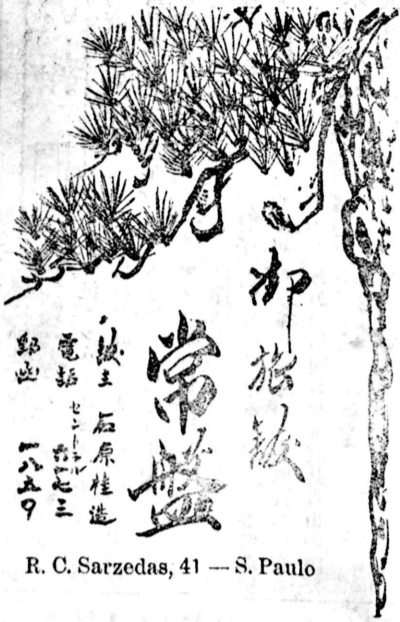 御旅舘
常盤
舘主 石原桂造
電話 セントラル 六一七三
郵函 一八五〇
R. C. Sarzedas, 41 — S. Paulo